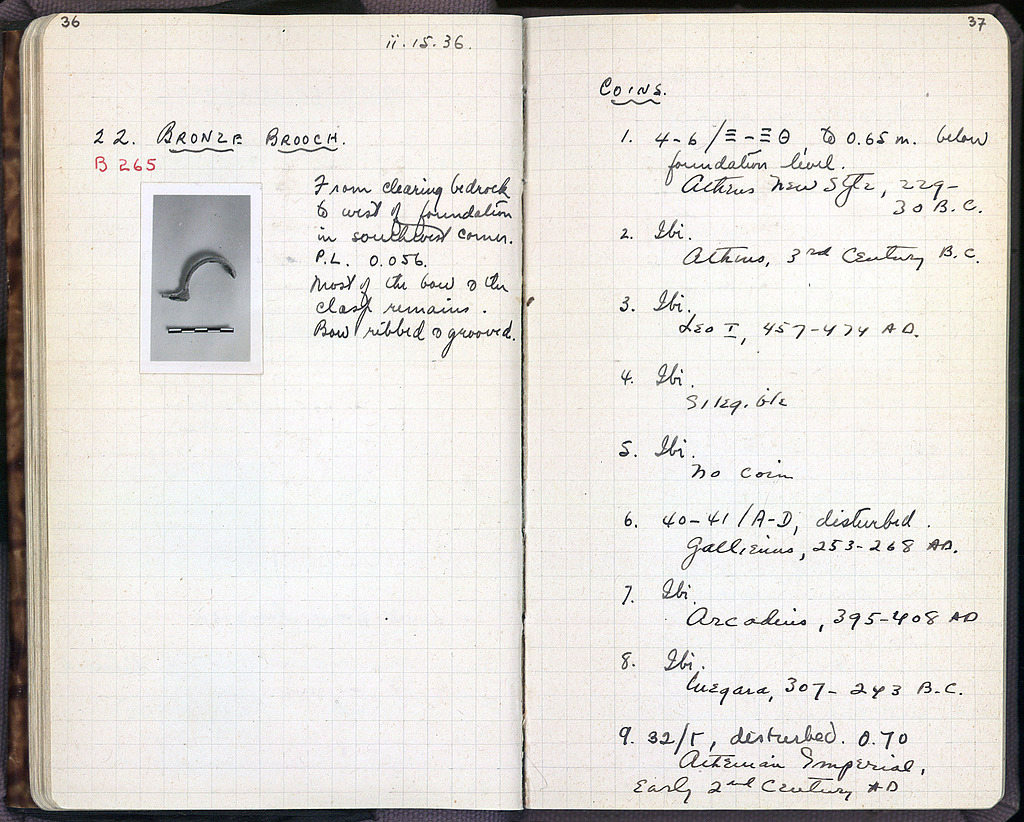 36
ii.15.36.
22. BRONZE BROOCH.
B 265
From clearing bedrock
to west of foundation
in southwest corner.
P.L. 0.056.
Most of the bow & the
clasp remains.
Bow ribbed & grooved.
37
COINS.
1. 4-6/Ξ-ΞΘ to 0.65 m. below
foundation level.
Athens New Style, 229-
30 B.C.
2. Ibi.
Athens, 3rd Century B.C.
3. Ibi.
Leo I, 457-474 A.D.
4. Ibi.
Illegible
5. Ibi.
No coin
6. 40-41/A-D, disturbed.
Gallienus, 253-268 AD.
7. Ibi.
Arcadius, 395-408 AD
8. Ibi.
Megara, 307-243 B.C.
9. 32/Γ, disturbed. 0.70
Athenian Imperial,
Early 2nd Century AD